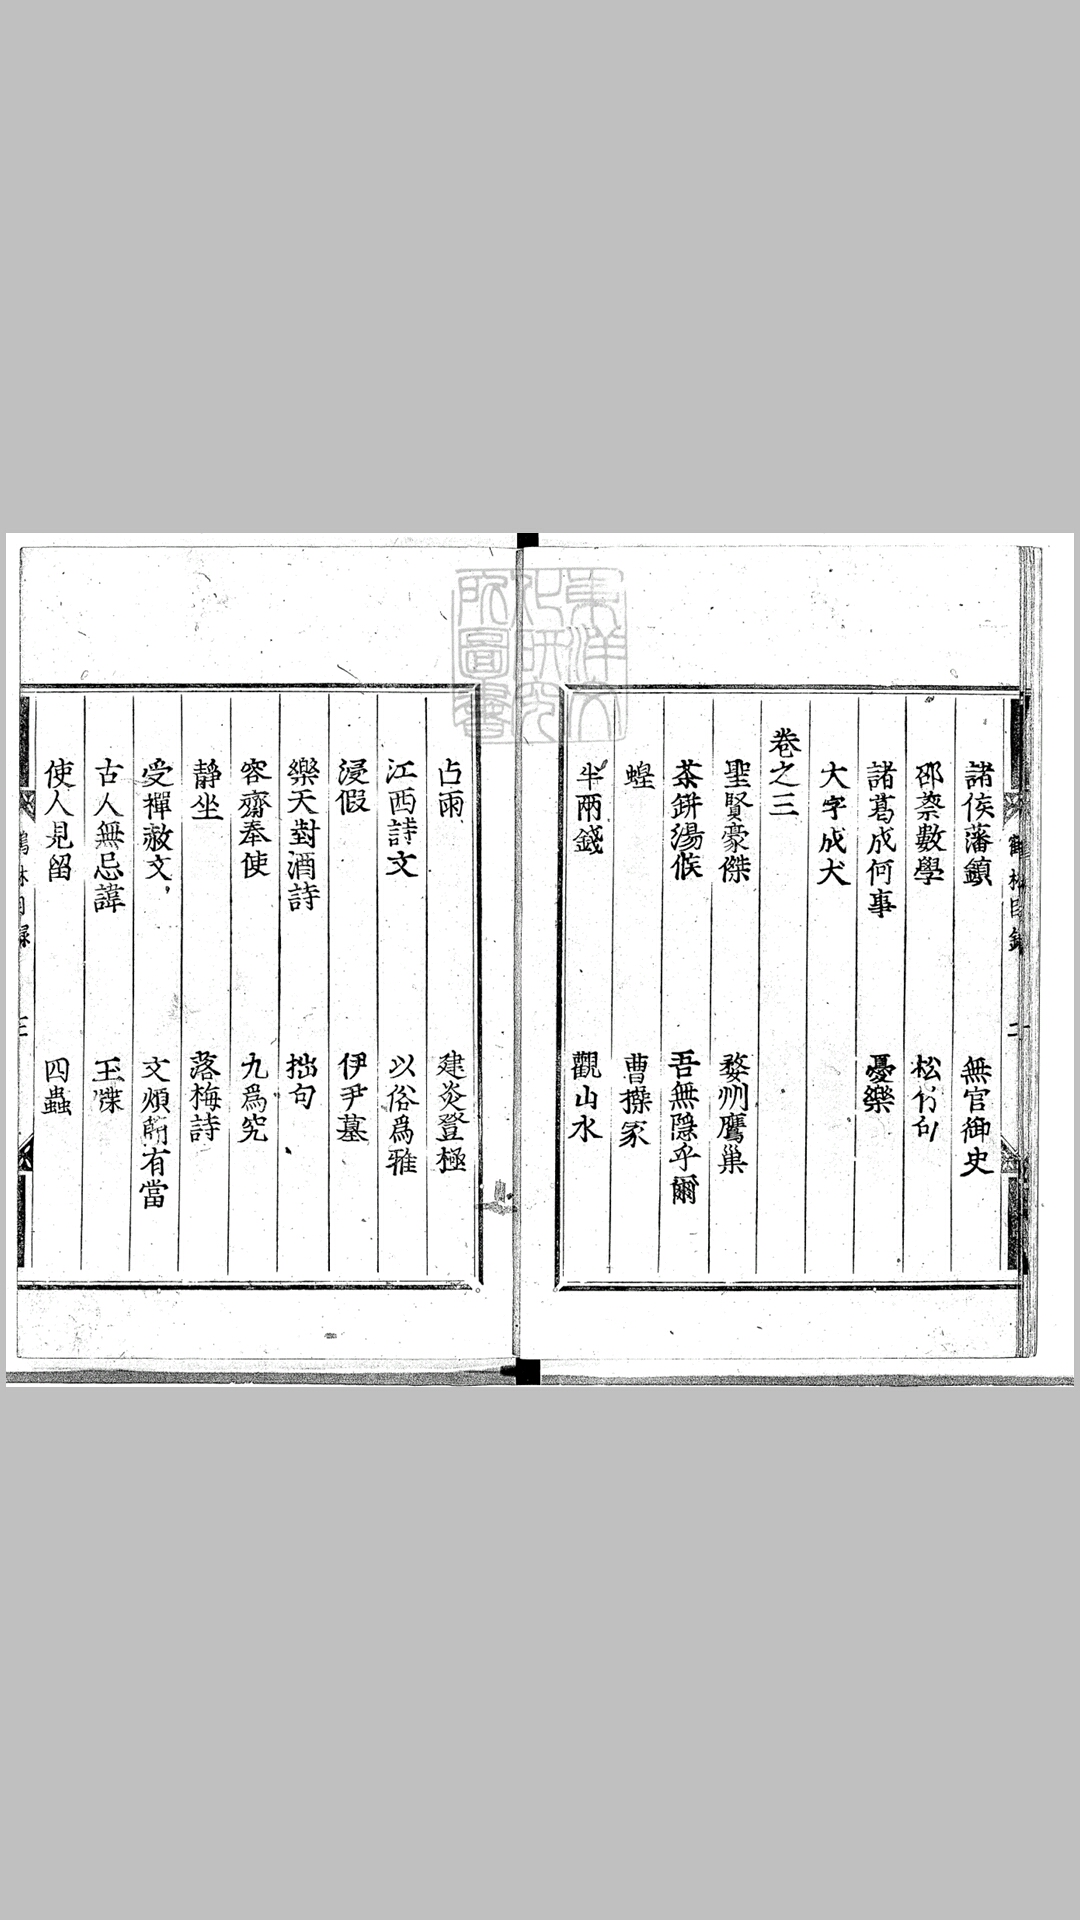 諸侯藩鎮 無官御史
邵蔡數學 松竹句
諸葛成何事 憂樂
大字成犬
卷之三
聖賢豪傑 婺州鷹巢
茶鉼湯候 吾無隱乎爾
蝗 曹操冢
半兩錢 觀山水
占雨 建炎登極
江西詩文 以俗爲雅
浸假 伊尹墓
樂天對酒詩 拙句
容齋奉使 九爲究
靜坐 落梅詩
受禪赦文 文煩簡有當
古人無忌諱 王
使人見留 四蟲
東洋文化研究所圖書